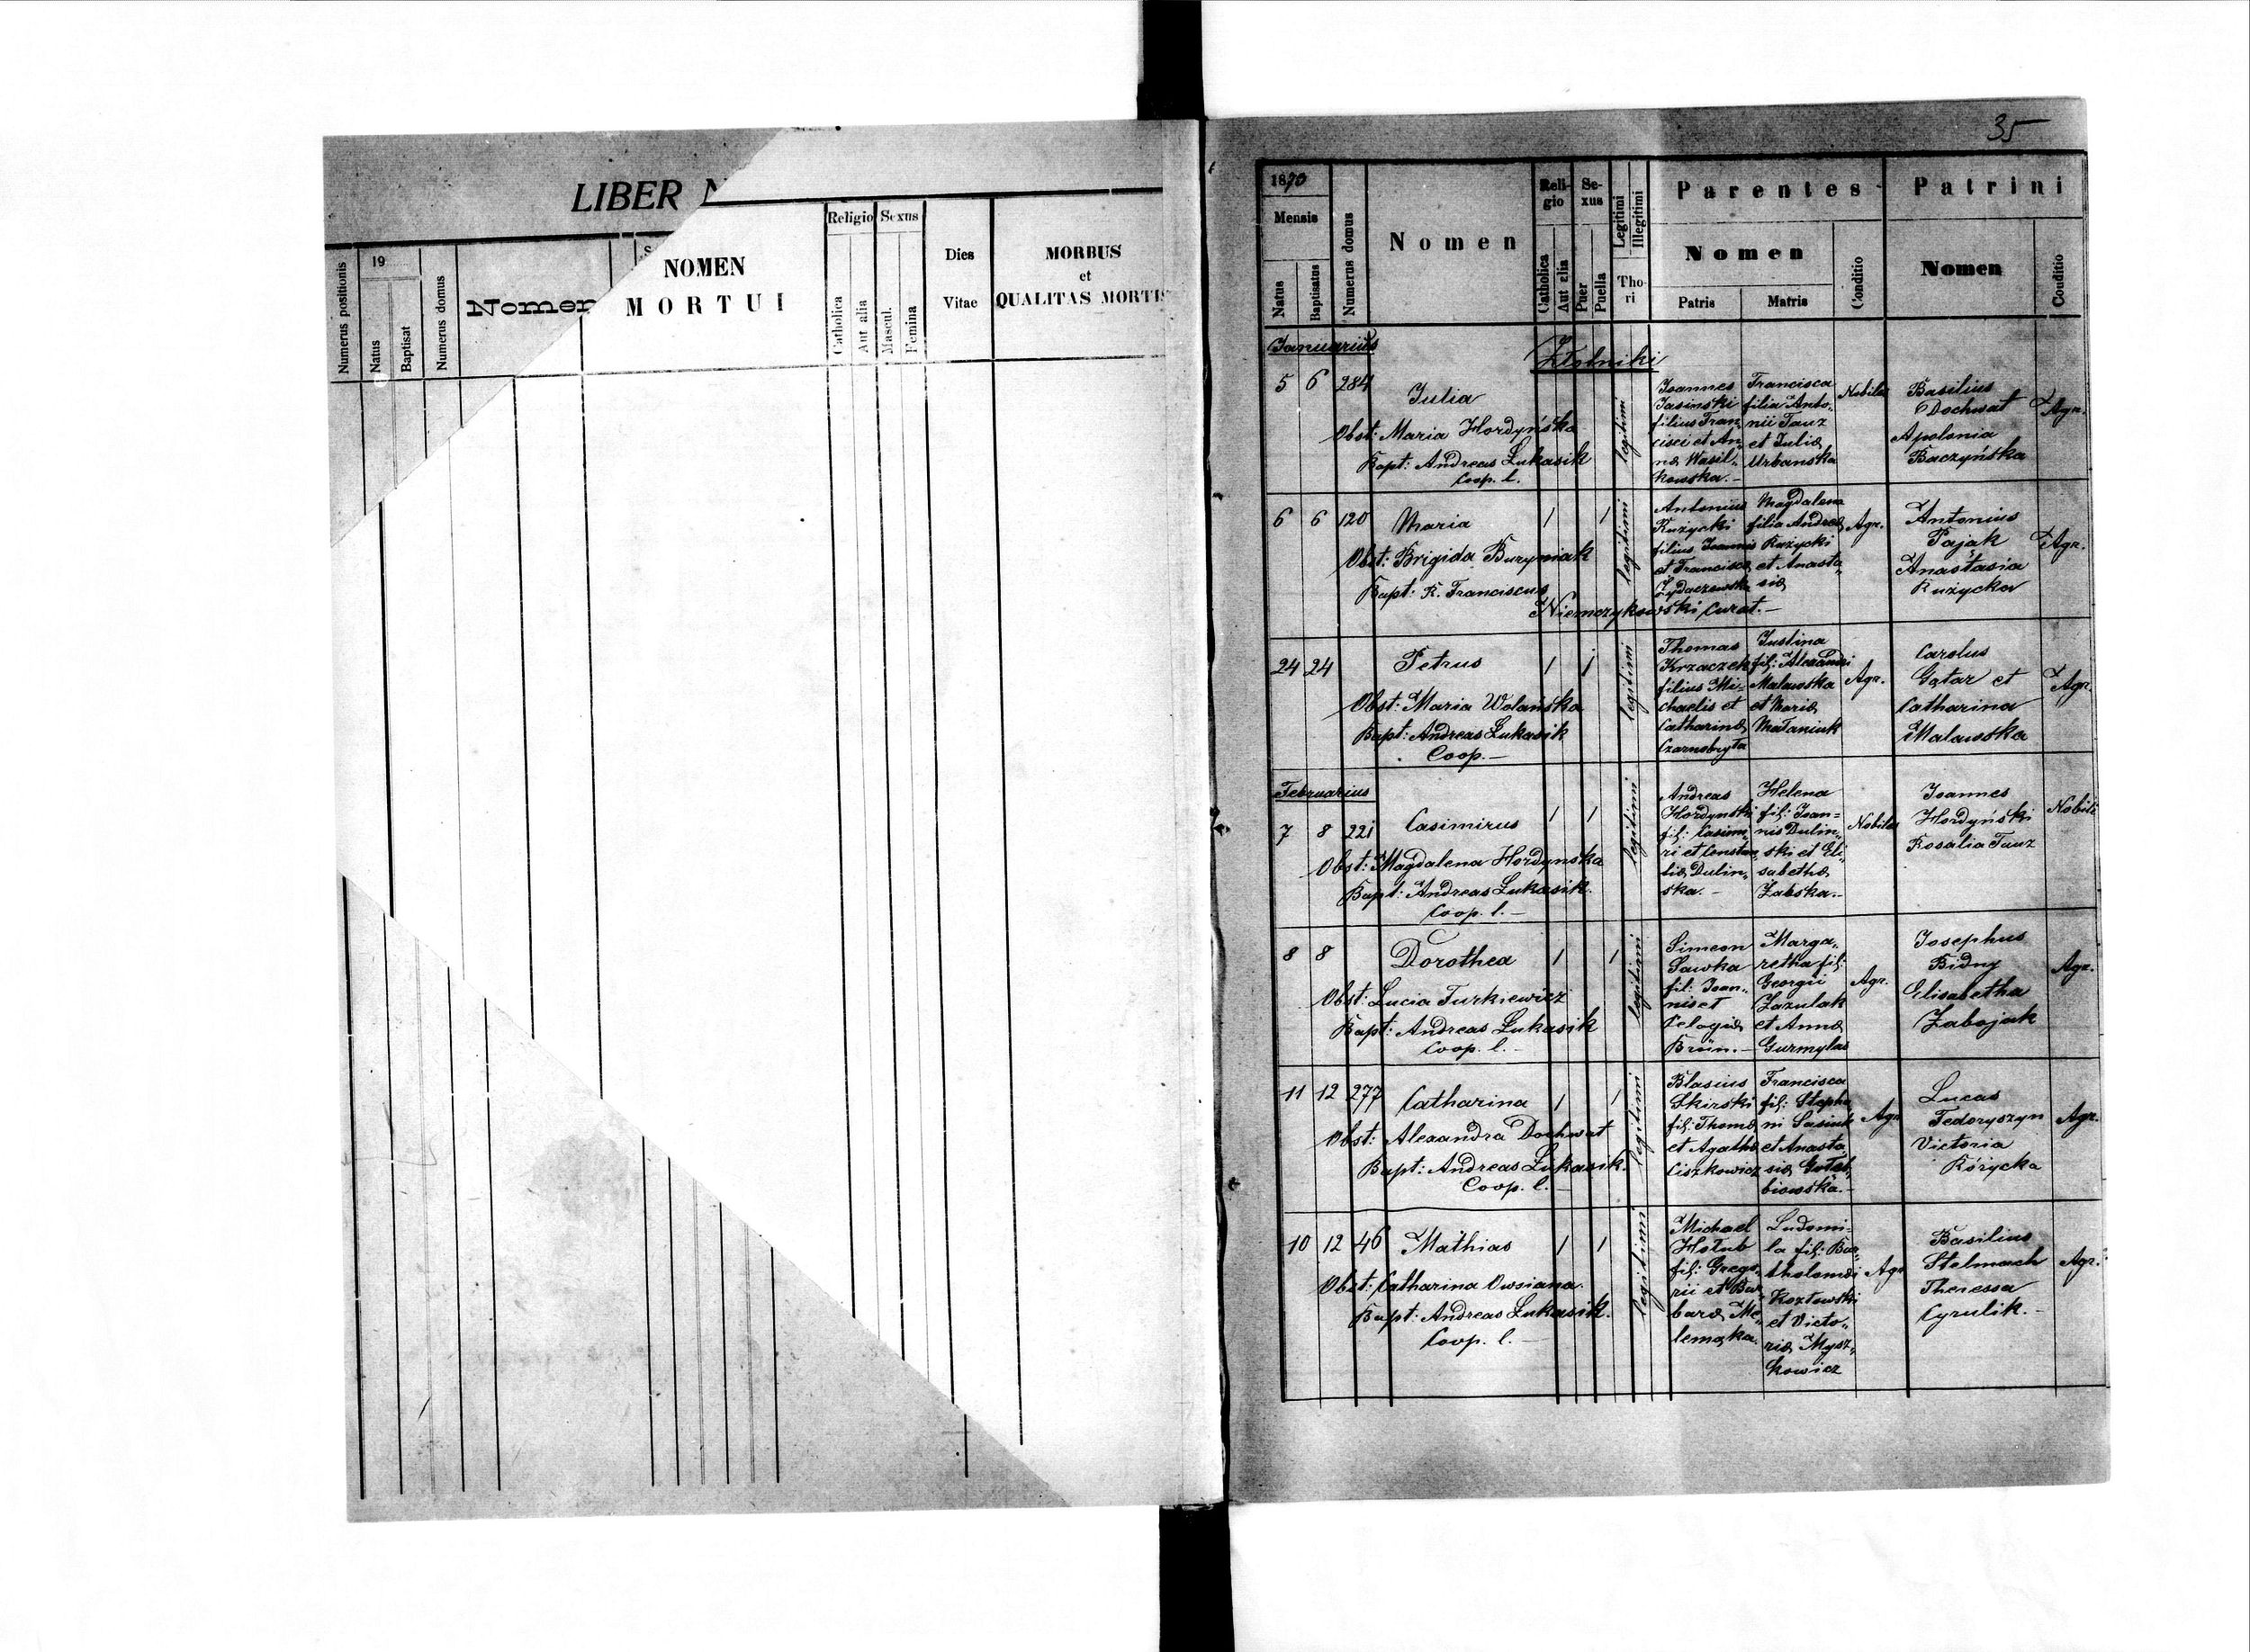 LIBER
Numerus positionis
19
Natus
Baptisat
Numerus domus
Nomen
NOMEN
MORTUI
Religio
Sexus
Catholica
Aut alia
Mascul.
Femina
Dies
Vitae
MORBUS
et
QUALITAS MORTIS
35
1870
Mensis
Natus
Baptisatus
Numerus domus
Nomen
Reli-
gio
Catholica
Aut alia
Se-
xus
Puer
Puella
Legitimi
Illegitimi
Tho-
ri
Parentes
Nomen
Patris
Matris
Conditio
Patrini
Nomen
Conditio
Januarius
Złotniki
5 6 284
Julia
Obst: Maria Hordyńska
Bapt: Andreas Lukasik
Coop. l.
legitimi
Joannes
Jasinski
filius Fran-
cisci et An-
næ Wasil-
kowska.-
Francisca
filia Anto-
nii Tauz
et Juliæ
Urbanska
Nobiles
Basilius
Dochwat
Apolonia
Baczyńska
Agr.
6 6 120
Maria
/ /
Obst: Brigida Buryniak
Bapt: R. Franciscus
Niemczykowski Curat.-
legitimi
Antonius
Kuzycki
filius Joannis
et Franciscæ
Zydaczewska
Magdalena
filia Andreæ
Kuzycki
et Anasta-
siæ
Agr.
Antonius
Pająk
Anastasia
Kuzycka
Agr.
24 24
Petrus
/ /
Obst: Maria Wolańska
Bapt: Andreas Lukasik
Coop.-
legitimi
Thomas
Krzaczek
filius Mi-
chaelis et
Catharinæ
Czarnobryta
Justina
fil: Alexandri
Malawska
et Mariæ
Mataniuk
Agr.
Carolus
Gątar et
Catharina
Malawska
Agr.
Februarius
7 8 221
Casimirus
/ /
Obst: Magdalena Hordynska
Bapt: Andreas Lukasik.
Coop. l.-
legitimi
Andreas
Hordynski
fil: Casimi-
ri et Constan-
tiæ Dulin-
ska.-
Helena
fil: Joan-
nis Dulin-
ski et Eli-
sabethæ
Żabska.-
Nobiles
Joannes
Hordyński
Rosalia Tauz
Nobiles
8 8
Dorothea
/ /
Obst: Lucia Turkiewicz
Bapt: Andreas Lukasik
Coop. l.-
legitimi
Simeon
Sawka
fil: Joan-
nis et
Pelagiæ
Marga-
retha fil:
Georgii
Zazulak
et Annæ
Gurmylas
Agr.
Josephus
Bidny
Elisabetha
Zabojak
Agr.
11 12 277
Catharina
/ /
Obst: Alexandra Dochwat
Bapt: Andreas Lukasik.
Coop. l.-
legitimi
Blasius
Skirski
fil: Thomæ
et Agathæ
Ciszkowicz
Francisca
fil: Stepha
ni Sasiuk
et Anasta-
siæ Gołęb-
biowska.-
Agr
Lucas
Fedoryszyn
Victoria
Kóżycka
Agr.
10 12 46
Mathias
/ /
Obst: Catharina Owsiana.
Bapt: Andreas Lukasik.
Coop. l.-
legitimi
Michael
Hołub
fil: Grego-
rii et Bar-
baræ Me-
Ludomi-
la fil: Bar-
tholomæi
Kozłowski
et Victo-
riæ Mysz-
kowicz
Agr
Basilius
Stelmach
Theressa
Cyrulik.-
Agr.